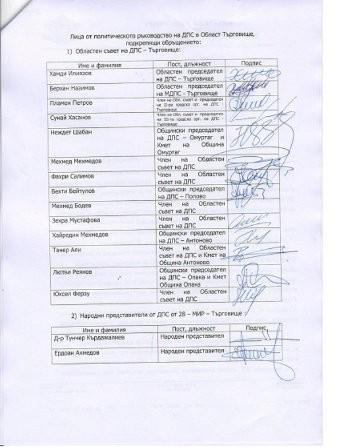 Лица от политическото ръководство на ДПС в Област Търговище,
подкрепящи обръщението:
1) Областен съвет на ДПС – Търговище:
Име и фамилия Пост, длъжност Подпис
Хамди Илиязов Областен председател на ДПС - Търговище
Берхан Назимов Областен председател на МДПС - Търговище
Пламен Петров Член на Обл. съвет и председател
Сунай Хасанов Член на Обл. съвет и председател
Неждет Шабан Общински председател на ДПС – Омуртаг и Кмет на Община Омуртаг
Мехмед Мехмедов Член на Областен съвет на ДПС
Фахри Салимов Член на Областен съвет на ДПС
Вехти Бейтулов Общински председател на ДПС – Попово
Мехмед Бодев Член на Областен съвет на ДПС
Зехра Мустафова Член на Областен съвет на ДПС
Хайредин Мехмедов Общински председател на ДПС – Антоново
Танер Али Член на Областен съвет на ДПС и Кмет на Община Антоново
Лютви Реянов Общински председател на ДПС – Опака и Кмет Община Опака
Юксел Ферзу Член на Областен съвет на ДПС
2) Народни представители от ДПС от 28 – МИР – Търговище :
Име и фамилия Пост, длъжност Подпис
Д-р Тунчер Кърджалиев Народен представител
Ердоан Ахмедов Народен представител